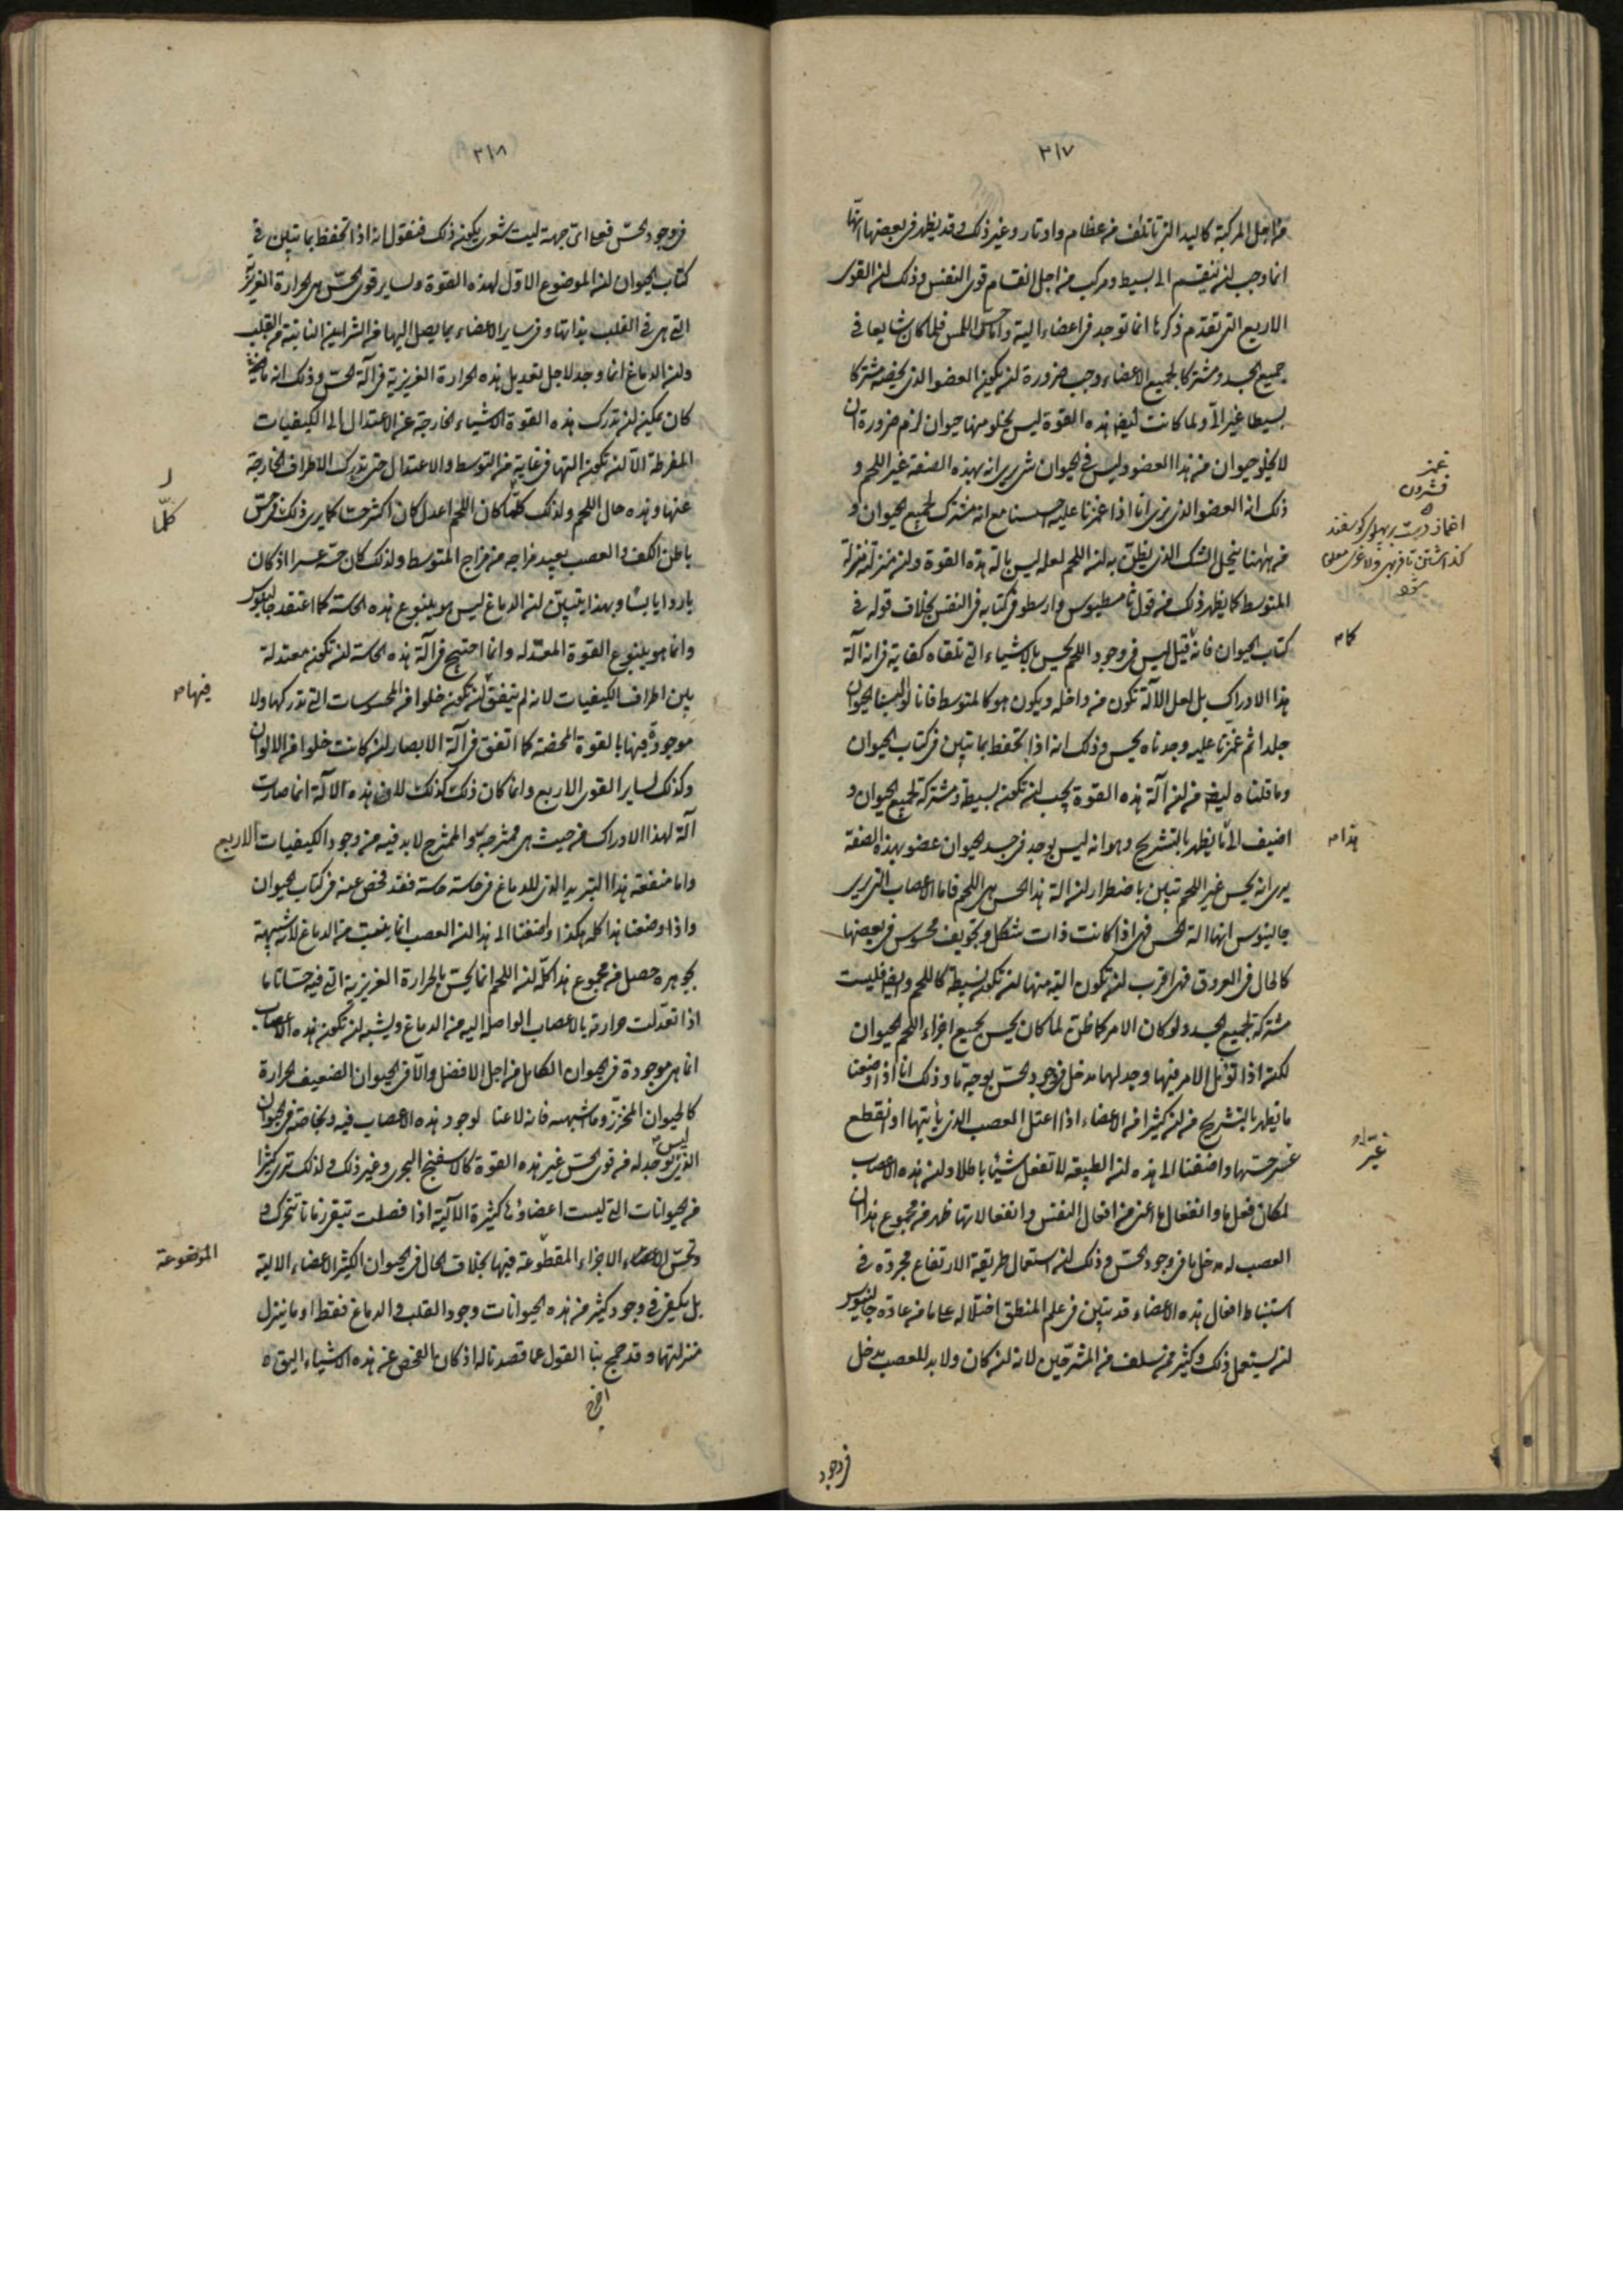 ٣١٧
من اجل المركبة كاليد التى تاتلف من عظام واوتار وغير ذلك وقد يظهر فى بعضها انها
انما وجب ان ينقسم الى بسيط ومركب من اجل انقسام قوى النفس وذلك ان القوى
الاربع التى تقدم ذكرها انما توجد فى اعضاء الية واما حس اللمس فلما كان شايعا فى
جميع الجسد ومشتركا لجميع الاعضاء وجب ضرورة ان يكون العضو الذى يخصه مشتركا
بسيطا غير الى ولما كانت ايضا هذه القوة ليس يخلو منها حيوان لزم ضرورة ان
لا يخلو حيوان من هذا العضو وليس فى الحيوان شئ يرى انه بهذه الصفة غير اللحم و
ذلك انه العضو الذى نرى انا اذا غمزنا عليه احسسنا مع انه مشترك لجميع الحيوان و
من ههنا ينحل الشك الذى يظن به ان اللحم لعله ليس بالة هذه القوة وان منزلته منزلة
المتوسط كما يظهر ذلك من قول ثامسطيوس وارسطو فى كتابه فى النفس بخلاف قوله فى
كتاب الحيوان فانه قيل ليس فى وجود اللحم يحس بالاشياء التى تلقاه كفاية فى انه آلة
هذا الادراك بل لعل الآلة تكون من داخله ويكون هو كالمتوسط فانا لو البسنا الحيوان
جلدا ثم غمزنا عليه وجدناه يحس وذلك انه اذا تحفظ بما تبين فى كتاب الحيوان
وما قلناه ايضا من ان آلة هذه القوة يجب ان تكون بسيطة ومشتركة لجميع الحيوان و
اضيف الى ما يظهر بالتشريح وهو انه ليس يوجد فى جسد الحيوان عضو بهذه الصفة
يرى انه يحس غير اللحم تبين باضطرار ان الة هذا الحس هى اللحم فاما الاعصاب التى يرى
جالينوس انها الة الحس فهى اذا كانت ذات شكل وتجويف محسوس فى بعضها
كالحال فى العروق فهى اقرب ان تكون الية منها ان تكون بسيطة كاللحم وايضا فليست
مشتركة لجميع الجسد ولو كان الامر كما ظن لما كان يحس جميع اجزاء اللحم الحيوان
لكنه اذا تؤمل الامر فيها وجد لها مدخل فى وجود الحس بوجه ما وذلك انا اذا وضعنا
ما يظهر بالتشريح من ان كثيرا من الاعضاء اذا اعتل العصب الذى يأتيها او انقطع
عسر حسها واضفنا الى هذه ان الطبيعة لا تفعل شيئا باطلا وان هذه الاعصاب
لمكان فعل ما وانفعال ما اعنى من افعال النفس وانفعالاتها ظهر من مجموع هذا ان
العصب له مدخل ما فى وجود الحس وذلك ان استعمال طريقة الارتفاع مجردة فى
استنباط افعال هذه الاعضاء قد تبين فى علم المنطق اختلاله على ما من عادة جالينوس
ان يستعمل ذلك وكثير ممن سلف من المشرحين لانه لئن كان ولا بد للعصب مدخل
فى وجود
غمز
فشردن
اغماز دست بر پهلوى گوسفند
گذاشتن تا فربهى ولاغرى معلوم
شود
كام
هذا م
غيّر
٣١٨
فى وجود الحس فعلى اى جهة ليت شعرى يكون ذلك فنقول انه اذا تحفظ بما تبين فى
كتاب الحيوان ان الموضوع الاول لهذه القوة ولساير قوى الحس هى الحرارة الغريزية
التى هى فى القلب بذاتها وفى ساير الاعضاء بما يصل اليها من الشرايين النابتة من القلب
وان الدماغ انما وجد لاجل تعديل هذه الحرارة الغريزية فى آلة الحس وذلك انه ما
كان يمكن ان تدرك هذه القوة الاشياء الخارجة عن الاعتدال الى الكيفيات
المفرطة الا ان تكون التها فى غاية من التوسط والاعتدال حتى تدرك الاطراف الخارجة
عنها وهذه حال اللحم ولذلك كلما كان اللحم اعدل كان اكثر حسا كما يرى ذلك فى حس
باطن الكف والعصب بعيد مزاجه من مزاج المتوسط ولذلك كان حسه عسرا اذ كان
باردا يابسا وبهذا يتبين ان الدماغ ليس هو ينبوع هذه الحاسة كما اعتقد جالينوس
وانما هو ينبوع القوة المعدلة وانما احتيج فى آلة هذه الحاسة ان تكون معتدلة
بين اطراف الكيفيات لانه لم يتفق ان تكون خلوا من المحسوسات التى تدركها ولا
موجودة فيها بالقوة المحضة كما اتفق فى آلة الابصار ان كانت خلوا من الالوان
وكذلك لساير القوى الاربع وانما كان ذلك كذلك لان هذه الآلة انما صارت
آلة لهذا الادراك من حيث هى ممتزجة والممتزج لا بد فيه من وجود الكيفيات الاربع
واما منفعة هذا التبريد الذى للدماغ فى حاسة حاسة فقد فحص عنه فى كتاب الحيوان
واذا وضعنا هذا كله هكذا واضفنا الى هذا ان العصب انما ينبعث من الدماغ لانه شبيهة
بجوهره حصل من مجموع هذا كله ان اللحم انما يحس بالحرارة الغريزية التى فيه حسا تاما
اذا تعدلت حرارته بالاعصاب الواصلة اليه من الدماغ ويشبه ان تكون هذه الاعصاب
انما هى موجودة فى الحيوان الكامل من اجل الافضل والا فى الحيوان الضعيف الحرارة
كالحيوان المحزز وما اشبهه فانه لا عنا لوجود هذه الاعصاب فيه وبخاصة فى الحيوان
الذى ليس يوجد له من قوى الحس غير هذه القوة كالاسفنج البحرى وغير ذلك ولذلك ترى كثيرا
من الحيوانات التى ليست اعضاؤها كثيرة الآلية اذا فصلت تبقى زمانا تتحرك و
وتحس الاعضاء الاجزاء المقطوعة فيها بخلاف الحال فى الحيوان الكثير الاعضاء الالية
بل يكفى فى وجود كثير من هذه الحيوانات وجود القلب والدماغ فقط او ما ينزل
منزلتهما وقد جمح بنا القول عما قصدنا له اذ كان الفحص عن هذه الاشياء اليق ه
ر
كلّما
فيها م
الموضوعة